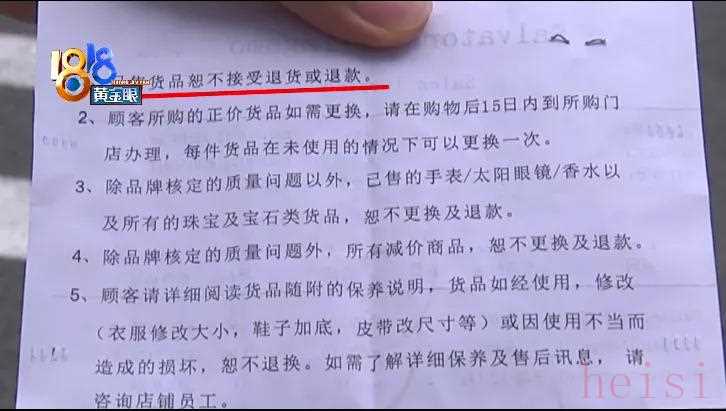 Salvatore
1818
黄金眼
货品恕不接受退货或退款。
2、顾客所购的正价货品如需更换，请在购物后15日内到所购门
店办理，每件货品在未使用的情况下可以更换一次。
3、除品牌核定的质量问题以外，已售的手表/太阳眼镜/香水以
及所有的珠宝及宝石类货品，恕不更换及退款。
4、除品牌核定的质量问题外，所有减价商品，恕不更换及退款。
5、顾客请详细阅读货品随附的保养说明，货品如经使用，修改
（衣服修改大小，鞋子加底，皮带改尺寸等）或因使用不当而
造成的损坏，恕不退换。如需了解详细保养及售后讯息，请
咨询店铺员工。
heisi